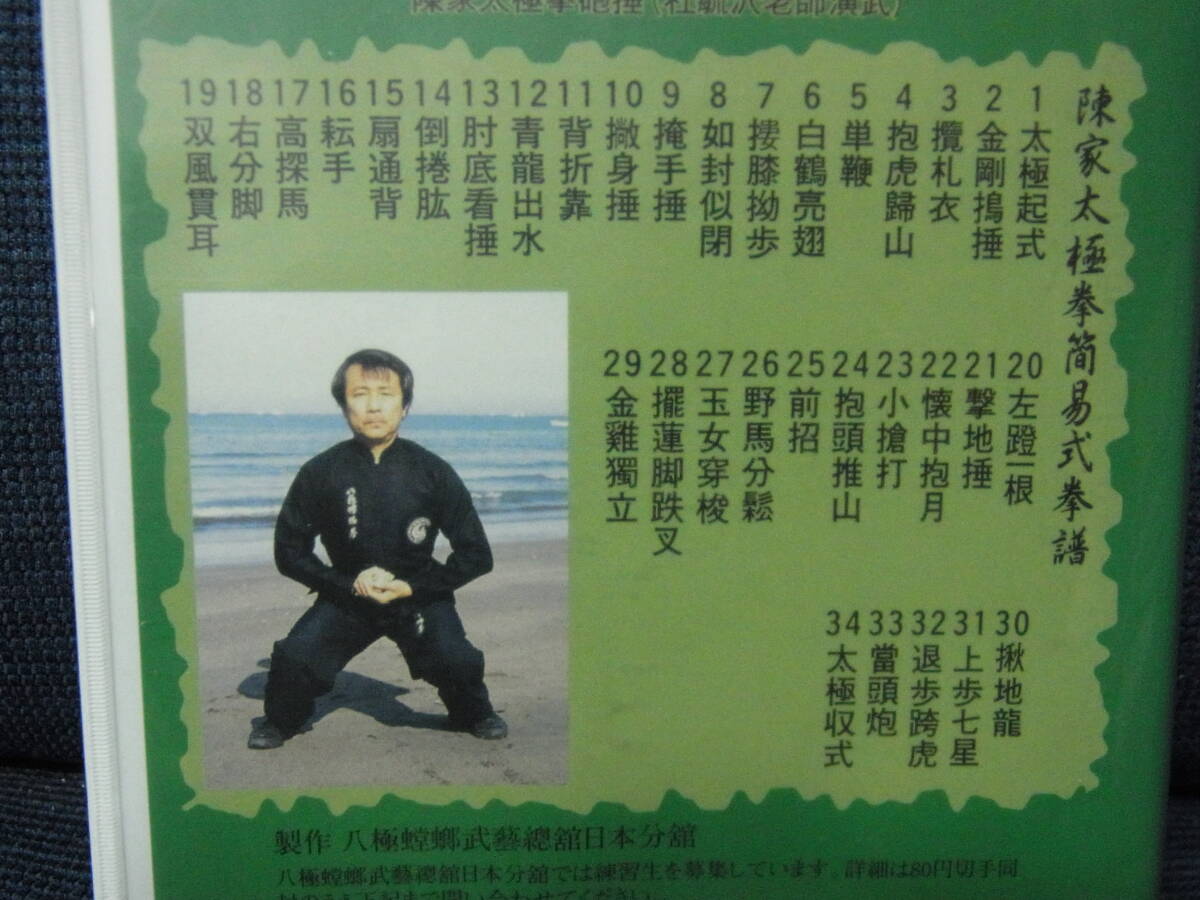 陳家太極拳砲捶(杜毓沢老師演武)
陳家太極拳簡易式拳譜
1太極起式
2金剛搗捶
3攬札衣
4抱虎歸山
5単鞭
6白鶴亮翅
7摟膝拗歩
8如封似閉
9掩手捶
10撇身捶
11背折靠
12青龍出水
13肘底看捶
14倒捲肱
15扇通背
16耘手
17高探馬
18右分脚
19双風貫耳
20左蹬一根
21撃地捶
22懐中抱月
23小搶打
24抱頭推山
25前招
26野馬分鬆
27玉女穿梭
28擺蓮脚跌叉
29金雞獨立
30揪地龍
31上歩七星
32退歩跨虎
33當頭炮
34太極収式
製作 八極螳螂武藝總舘日本分舘
八極螳螂武藝總舘日本分舘では練習生を募集しています。詳細は80円切手同